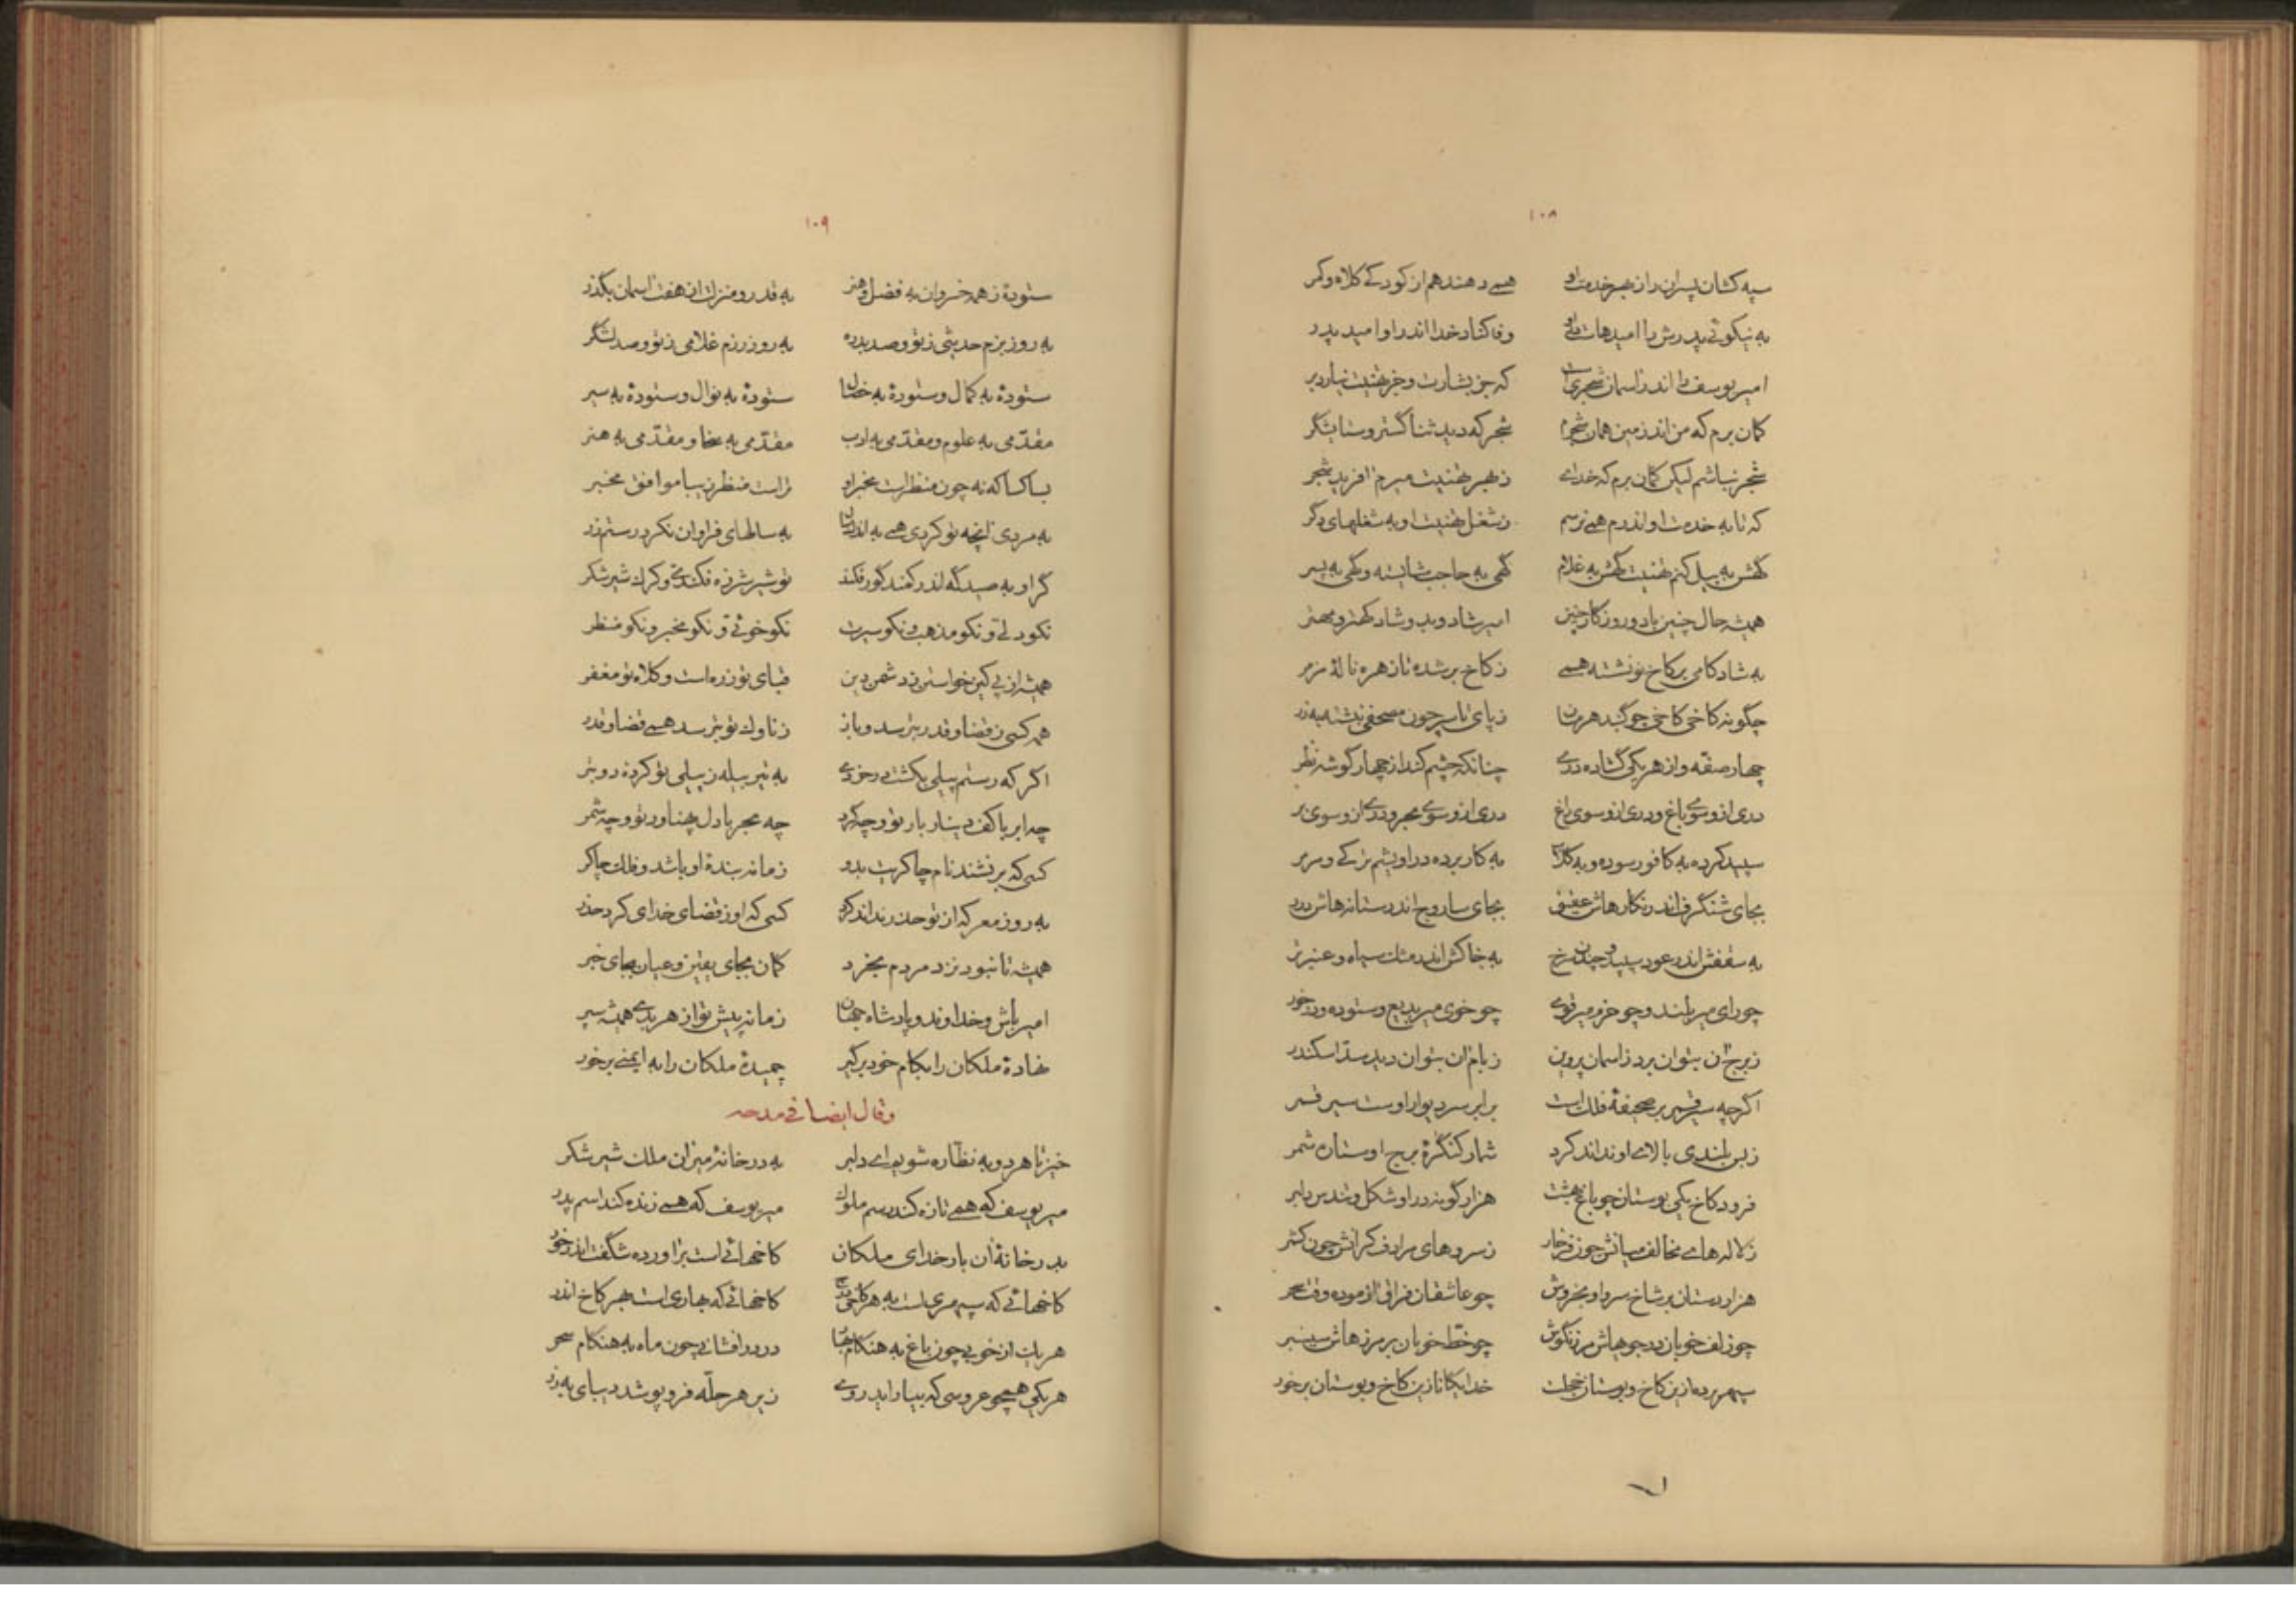 ۱۰۸
سپه کشان پسران را ز بهر خدمت او همی دهند هم از کودکی کلاه و کمر
به نیکوئی پدرش را امیدهاست در او وفا کناد خدا اندر او امید پدر
امیر یوسف را اندر آسمان شجری است که جز بشارت و جز تهنیت نیارد بر
گمان برم که من اندر زمین همان شجرم شجر که دید ثنا گستر و ستایشگر
شجر نباشم لیکن گمان برم که خدای ز بهر تهنیت میرم آفرید شجر
که تا به خدمت او اندرم همی نرسم ز شغل تهنیت او به شغلهای دگر
گهش به پیل کنم تهنیت گهش به غلام گهی به حاجب شایسته و گهی به پسر
همیشه حال چنین باد و روزگار چنین امیر شاد و بدو شاد کهتر و مهتر
به شادکامی بر کاخ نو نشسته همی ز کاخ بر شده تا زهره ناله مزمر
چگونه کاخی کاخی چو گنبد هرمان ز پای تا سر چون مصحفی نبشته به زر
چهار صفه و از هر یکی گشاده دری چنانکه چشم کند از چهار گوشه نظر
دری ازو سوی باغ و دری ازو سوی راغ دری ازو سوی بحر و دری ازو سوی بر
سپید کرده به کافور سوده و به گلاب به کار برده در او یشم ترکی و مرمر
بجای شنگرف اندر نگارهاش عقیق بجای ساروج اندر ستانه‌هاش درر
به سقفش اندر عود سپید و چندن سرخ به خاکش اندر مشک سیاه و عنبر تر
چو رای میر بلند و چو حزم میر قوی چو خوی میر بدیع و ستوده و در خور
ز برج آن بتوان برد ز آسمان پروین ز بام آن بتوان دید سد اسکندر
اگر چه سیر قمر بر صحیفه فلک است برابر سر دیوار اوست سیر قمر
ز بس بلندی بالای او نداند کرد شمار کنگره برج او ستاره شمر
فرود کاخ یکی بوستان چو باغ بهشت هزار گونه در او شکل و تندس دلبر
ز لاله‌های مخالف میانش چون فرخار ز سروهای مرادف کرانش چون کشمر
هزار دستان بر شاخ سرو او بخروش چو عاشقان فراق آزموده وقت سحر
چو زلف خوبان در جویهاش مرزنگوش چو خط خوبان بر مرزهاش سیسنبر
سپهر برده ازین کاخ و بوستان خجلت خدایگانا زین کاخ و بوستان برخور
۱۰۹
ستوده ز همه خسروان به فضل و هنر به قدر و منزلت از هفت آسمان بگذر
به روز بزم حدیثی ز تو و صد بدره به روز رزم غلامی ز تو و صد لشگر
ستوده به کمال و ستوده به خصال ستوده به نوال و ستوده به سیر
مقدمی به علوم و مقدمی به ادب مقدمی به سخا و مقدمی به هنر
بسا کسا که نه چون منظر است مخبر او تراست منظر زیبا موافق مخبر
به مردی آنچه تو کردی همی به اندک سال به سالهای فراوان نکرد رستم زر
گر او به صیدگه اندر کمند گور فکند تو شیر شرزه فکندی و کرگ شیر شکر
نکو دلی و نکو مذهب و نکو سیرت نکو خوئی و نکو مخبر و نکو منظر
همیشه از پی کین خواستن ز دشمن دین قبای تو زره است و کلاه تو مغفر
همه کسی ز قضا و قدر بترسد و باز ز ناوک تو بترسد همی قضا و قدر
اگر که رستم پیلی بکشت در خردی به تیر بیله ز پیلی تو کرده دو بتر
چه ابر با کف دینار بار تو و چه گرد چه بحر با دل پهناور تو و چه شمر
کسی که بر فشند نام چاکریت بدو زمانه بنده او باشد و فلک چاکر
به روز معرکه از تو حذر نداند کرد کسی که او ز قضای خدای کرد حذر
همیشه تا نبود نزد مردم بخرد گمان بجای یقین و عیان بجای خبر
امیر باش و خداوند و پادشاه جهان زمانه پیش تو از هر بدی همیشه سپر
نهاده ملکان را بکام خود برگیر چمیده ملکان را به ایمنی برخور
و قال ایضا فی مدحه
خیز تا هر دو به نظاره شویم ای دلبر به در خانه میر آن ملک شیر شکر
میر یوسف که همی تازه کند رسم ملوک میر یوسف که همی زنده کند اسم پدر
بدر خانه آن بار خدای ملکان کاخهائی است برآورده شگفت اندر خور
کاخهائی که سپهری است به هر کاخی بر کاخهائی که بهاری است بهر کاخ اندر
هر یک از خوبی چون باغ به هنگام بهار در درافشانی چون ماه به هنگام سحر
هر یکی همچو عروسی که بیاراید روی زبر هر حله فرو پوشد دیبای به زر